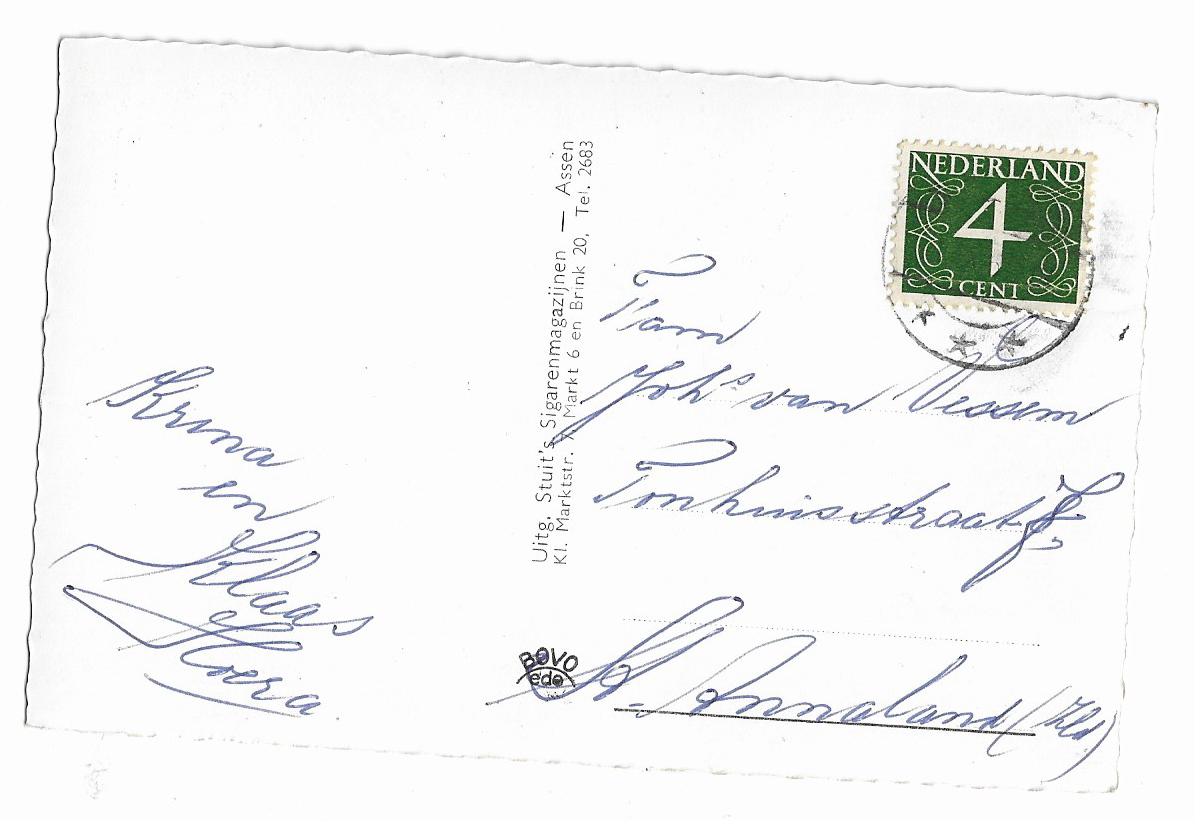 Krina
en
Klaas
Moera
Uitg. Stuit's Sigarenmagazijnen — Assen
Kl. Marktstr. X Markt 6 en Brink 20, Tel. 2683
BOVO
edo
NEDERLAND
4
CENT
Fam
Joh^s van Vessem
Tonhuisstraat
St. Annaland (Zld)